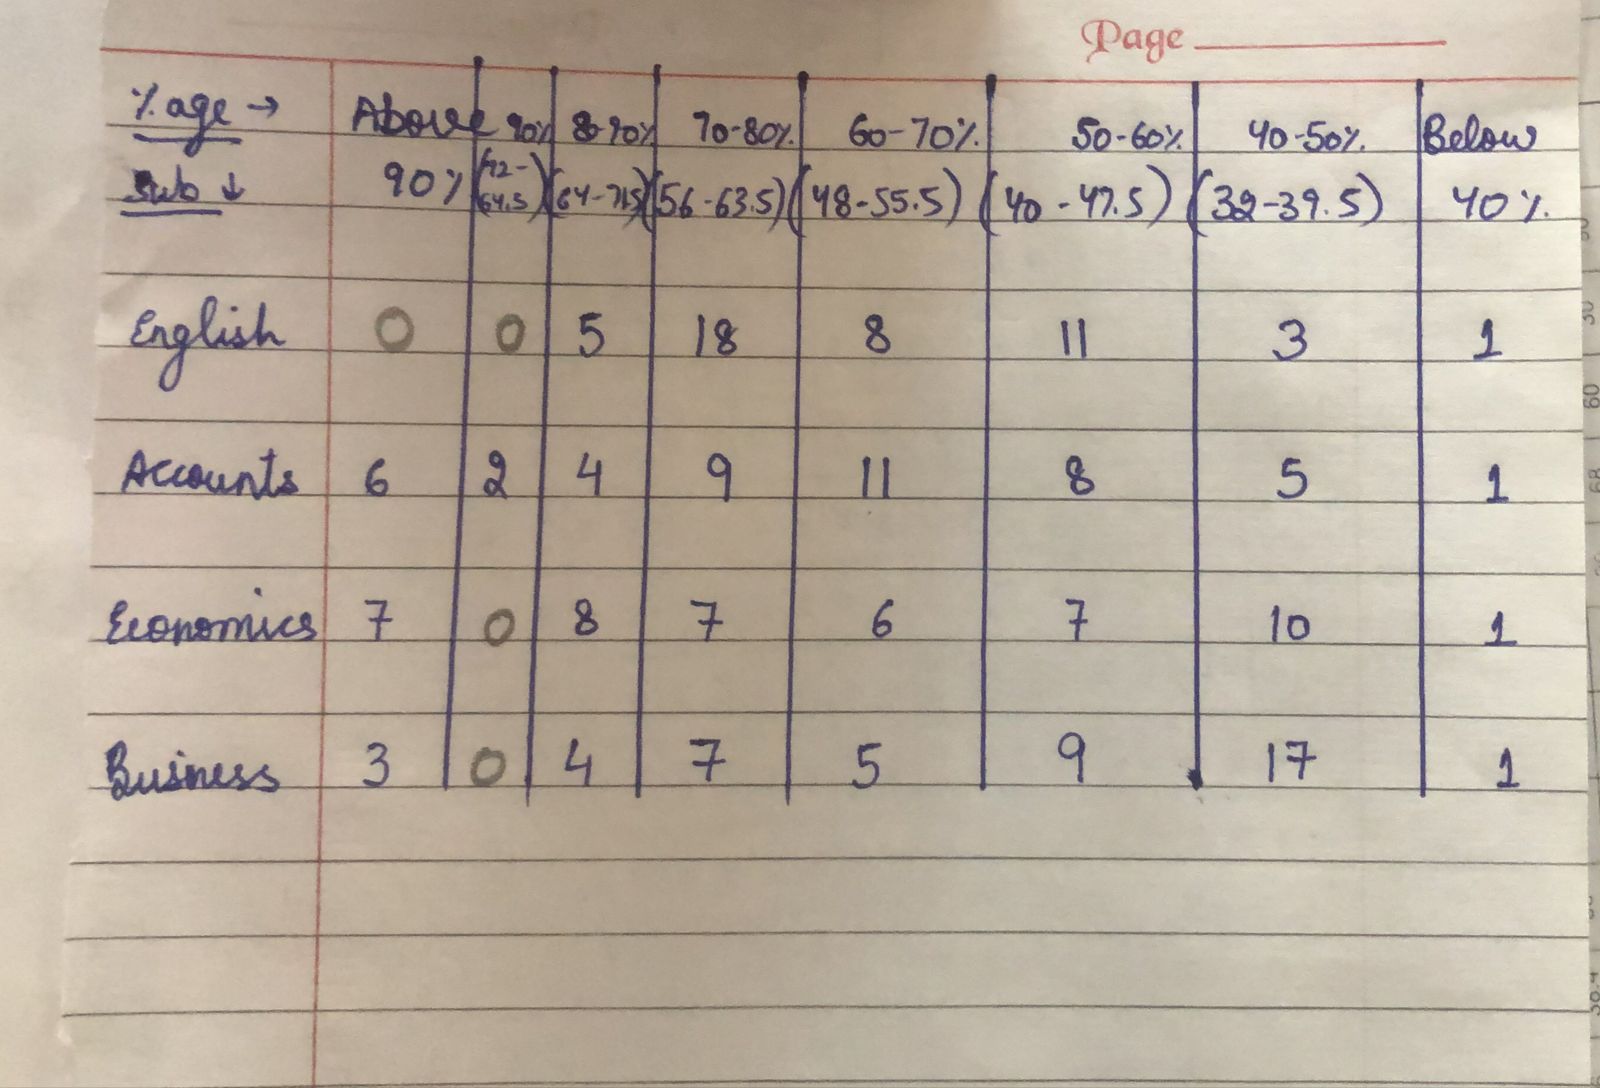 Page
% age → Above 90% 80-90% 70-80% 60-70% 50-60% 40-50% Below
Sub ↓ 90% (72-64.5) (64-71.5) (56-63.5) (48-55.5) (40-47.5) (32-39.5) 40%.
English 0 0 5 18 8 11 3 1
Accounts 6 2 4 9 11 8 5 1
Economics 7 0 8 7 6 7 10 1
Business 3 0 4 7 5 9 17 1